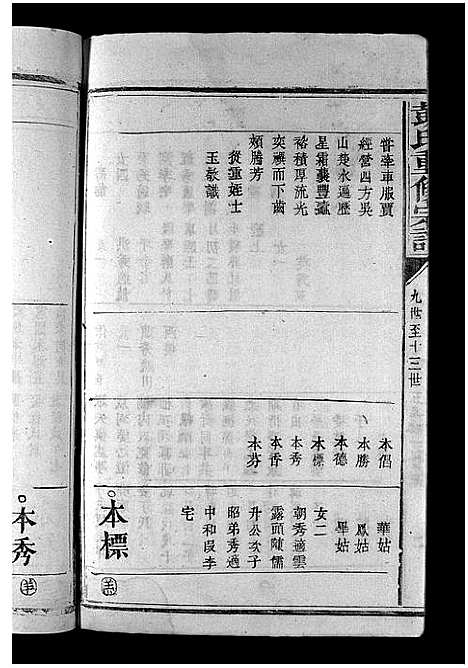 彭氏重修宗譜
九世至十三世
嘗牽車服賈
經營四方吳
山楚水遍歷
星霜囊豐
裕積厚流光
奕禩而下齒
頰騰芳
貲重姪士
玉敬識
本侶
本勝
本德
本標
本秀
本香
本芬
華姑
鳳姑
畢姑
女二
朝秀適雲
露頭陳儒
升公次子
昭弟秀適
中和段李
宅
本標
本秀